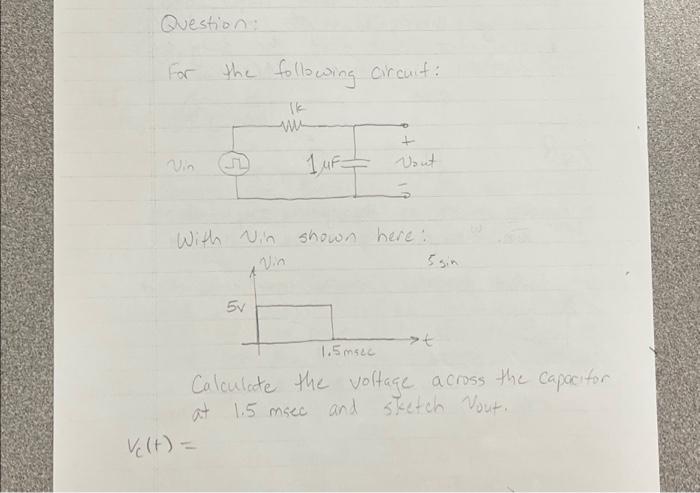 Question:
For the following circuit:
1k
Vin
1µF
+
Vout
-
With Vin shown here:
Vin
5 sin
5v
t
1.5msec
Calculate the voltage across the capacitor
at 1.5 msec and sketch Vout.
Vc(t) =